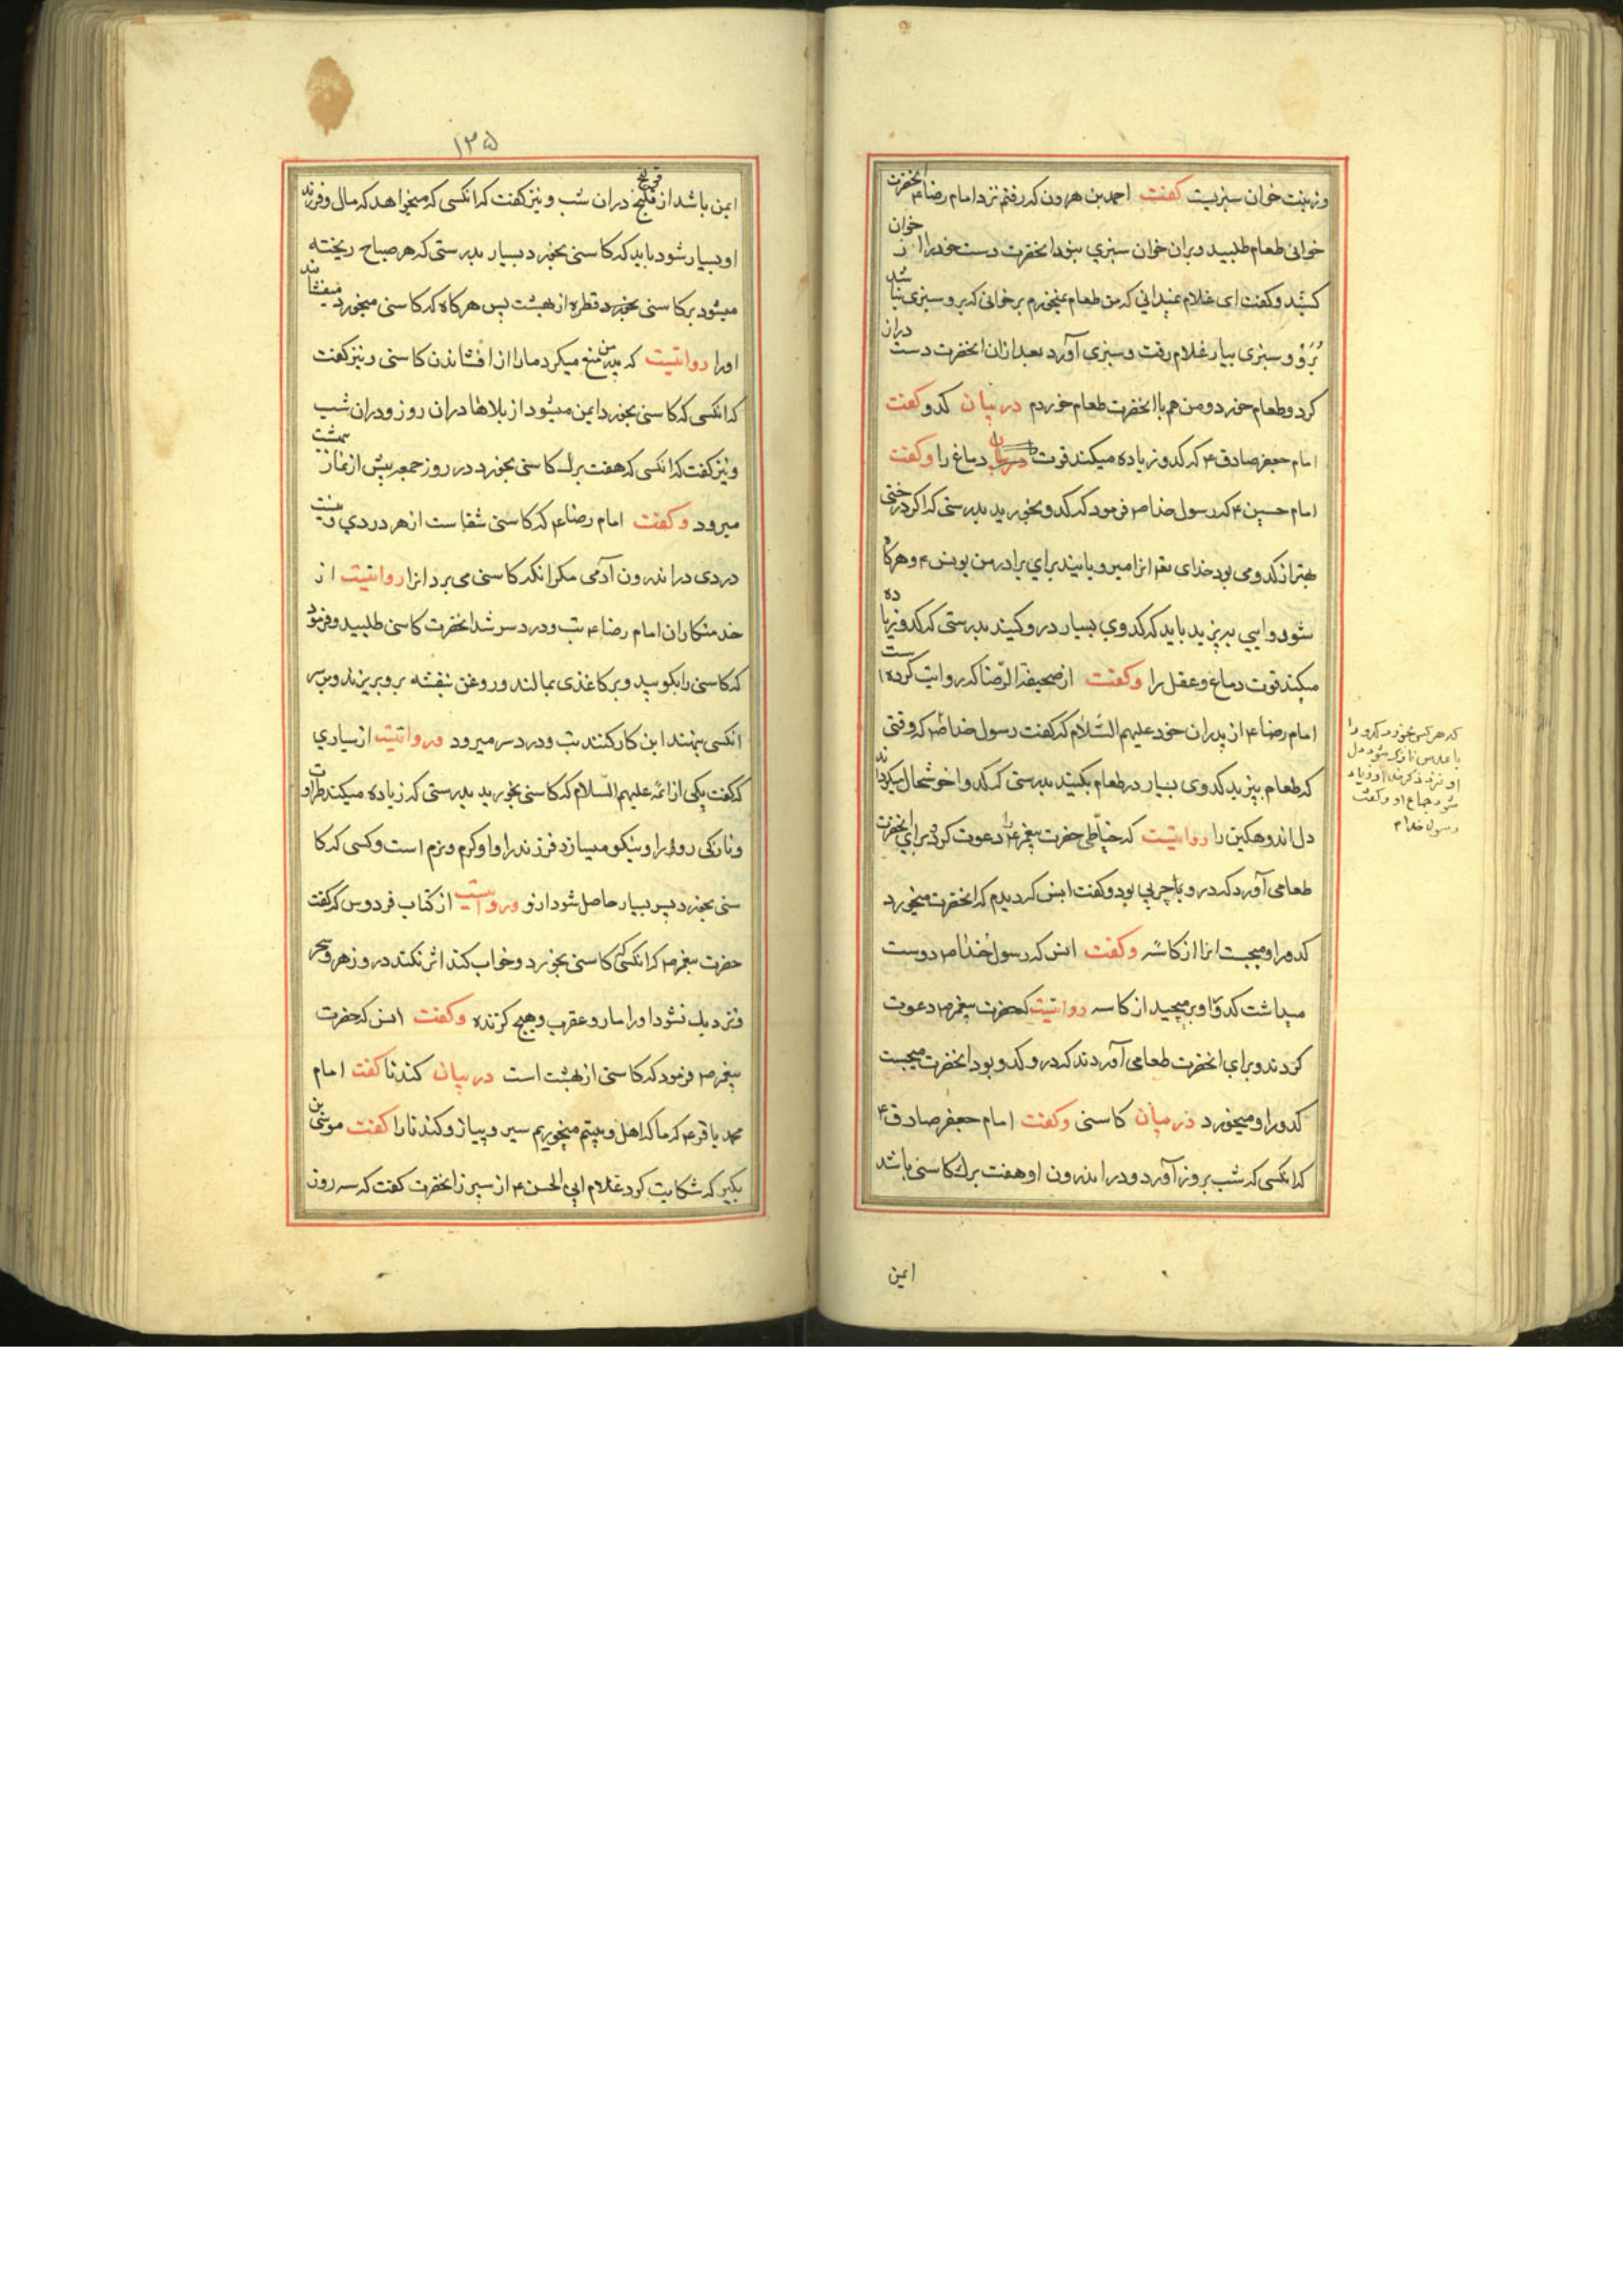 وزینت خوان سبزیست کفت احمد بن هرون که رفتم نزد امام رضا ع انحضرت
خوانی طعام طلبید و بران خوان سبزي نبود انحضرت دست خود را از خوان
کشید و کفت ای غلام نمیدانی که من طعام نمیخورم بر خوانی که برو سبزی نباشد
بَرَوْ و سبزی بیار غلام رفت و سبزي آورد بعد ازان انحضرت دست دران
کرد و طعام خورد و من هم با انحضرت طعام خوردم در بیان کدو کفت
امام جعفر صادق ع که کدو زیاده میکند قوت دماغ را وکفت
امام حسین ع که رسول خدا ص فرمود که کدو بخورید بدرستی که اکر درختی
بهتر از کدو می بود خدای تعم انرا میرویانید براي برادر من یونس ع و هرکاه
شود وایی بپزید باید که کدوي بسیار درو کنید بدرستی که کدو زیاده
میکند قوت دماغ و عقل را وکفت از صحیفة الرّضا که روایت کرده است
امام رضا ع از پدران خود علیهم السّلام که کفت رسول خدا ص که وقتی
که طعام بپزید کدوی بسیار در طعام بکنید بدرستی که کدو خوشحال میکرداند
دل اندوهکین را روایتست که خیّاطی حضرت پیغمبر ص را دعوت کرد و براي انحضرت
طعامی آورد که درو با چربي بود و کفت انس که دیدم که انحضرت میخورد
کدو را و میجست انرا از کاسه وکفت انس که رسول خدا ص دوست
میداشت کدو را و برمیچید از کاسه روایتست که حضرت پیغمبر ص دعوت
کردند و براي انحضرت طعامی آوردند که درو کدو بود انحضرت میجست
کدو را و میخورد در میان کاسنی وکفت امام جعفر صادق ع
که انکسی که شب بروز آورد و در اندرون او هفت برک کاسنی باشد
ایمن
که هر کس بخورد کدو را
با عدس نازک شود دل
او نزد ذکر خدا و زیاد
شود جماع او وکفت
رسول خدا ص
۱۳۵
ایمن باشد از قولنج دران شب و نیز کفت که انکسی که میخواهد که مال و فرزند
او بسیار شود باید که کاسنی بخورد بسیار بدرستی که هر صباح ریخته
میشود بر کاسنی قطره از بهشت پس هرکاه که کاسنی میخورد میفشانند
اورا روایتست که پدر من منع میکرد مارا از افشاندن کاسنی و نیز کفت
که انکسی که کاسنی بخورد ایمن میشود از بلاها دران روز و دران شب
و نیز کفت که انکسی که هفت برک کاسنی بخورد در روز جمعه پیش از نماز بهشت
میرود وکفت امام رضا ع که کاسنی شفاست از هر دردي و نیست
دردی در اندرون آدمی مکر انکه کاسنی می برد انرا روایتست از
خدمتکاران امام رضا ع تب و درد سر شد انحضرت کاسنی طلبید و فرمود
که کاسنی را بکوبید و بر کاغذی بمالند و روغن بنفشه برو بریزند و بر سر
انکسی بنهند این کار کنند تب و درد سر میرود وروایتست از سیاري
که کفت یکی از ائمّه علیهم السّلام که کاسنی بخورید بدرستی که زیاده میکند طراوت
و نازکی رو را و نیکو میسازد فرزند را و او کرم و نرم است و کسی که کا
سنی بخورد پسر بسیار حاصل شود ازو وروایتست از کتاب فردوس که کفت
حضرت پیغمبر ص که انکسی که کاسنی بخورد و خواب کند اثر نکند درو زهر و سحر
و نزدیک نشود اورا مار و عقرب و هیچ کزنده وکفت انس که حضرت
پیغمبر ص فرمود که کاسنی از بهشت است در بیان کندنا کفت امام
محمد باقر ع که ما که اهل و بیتم میخوریم سیر و پیاز و کندنا را کفت موسی بن
بکیر که شکایت کرد غلام ابي الحسن ع از سپرز انحضرت کفت که سه روز